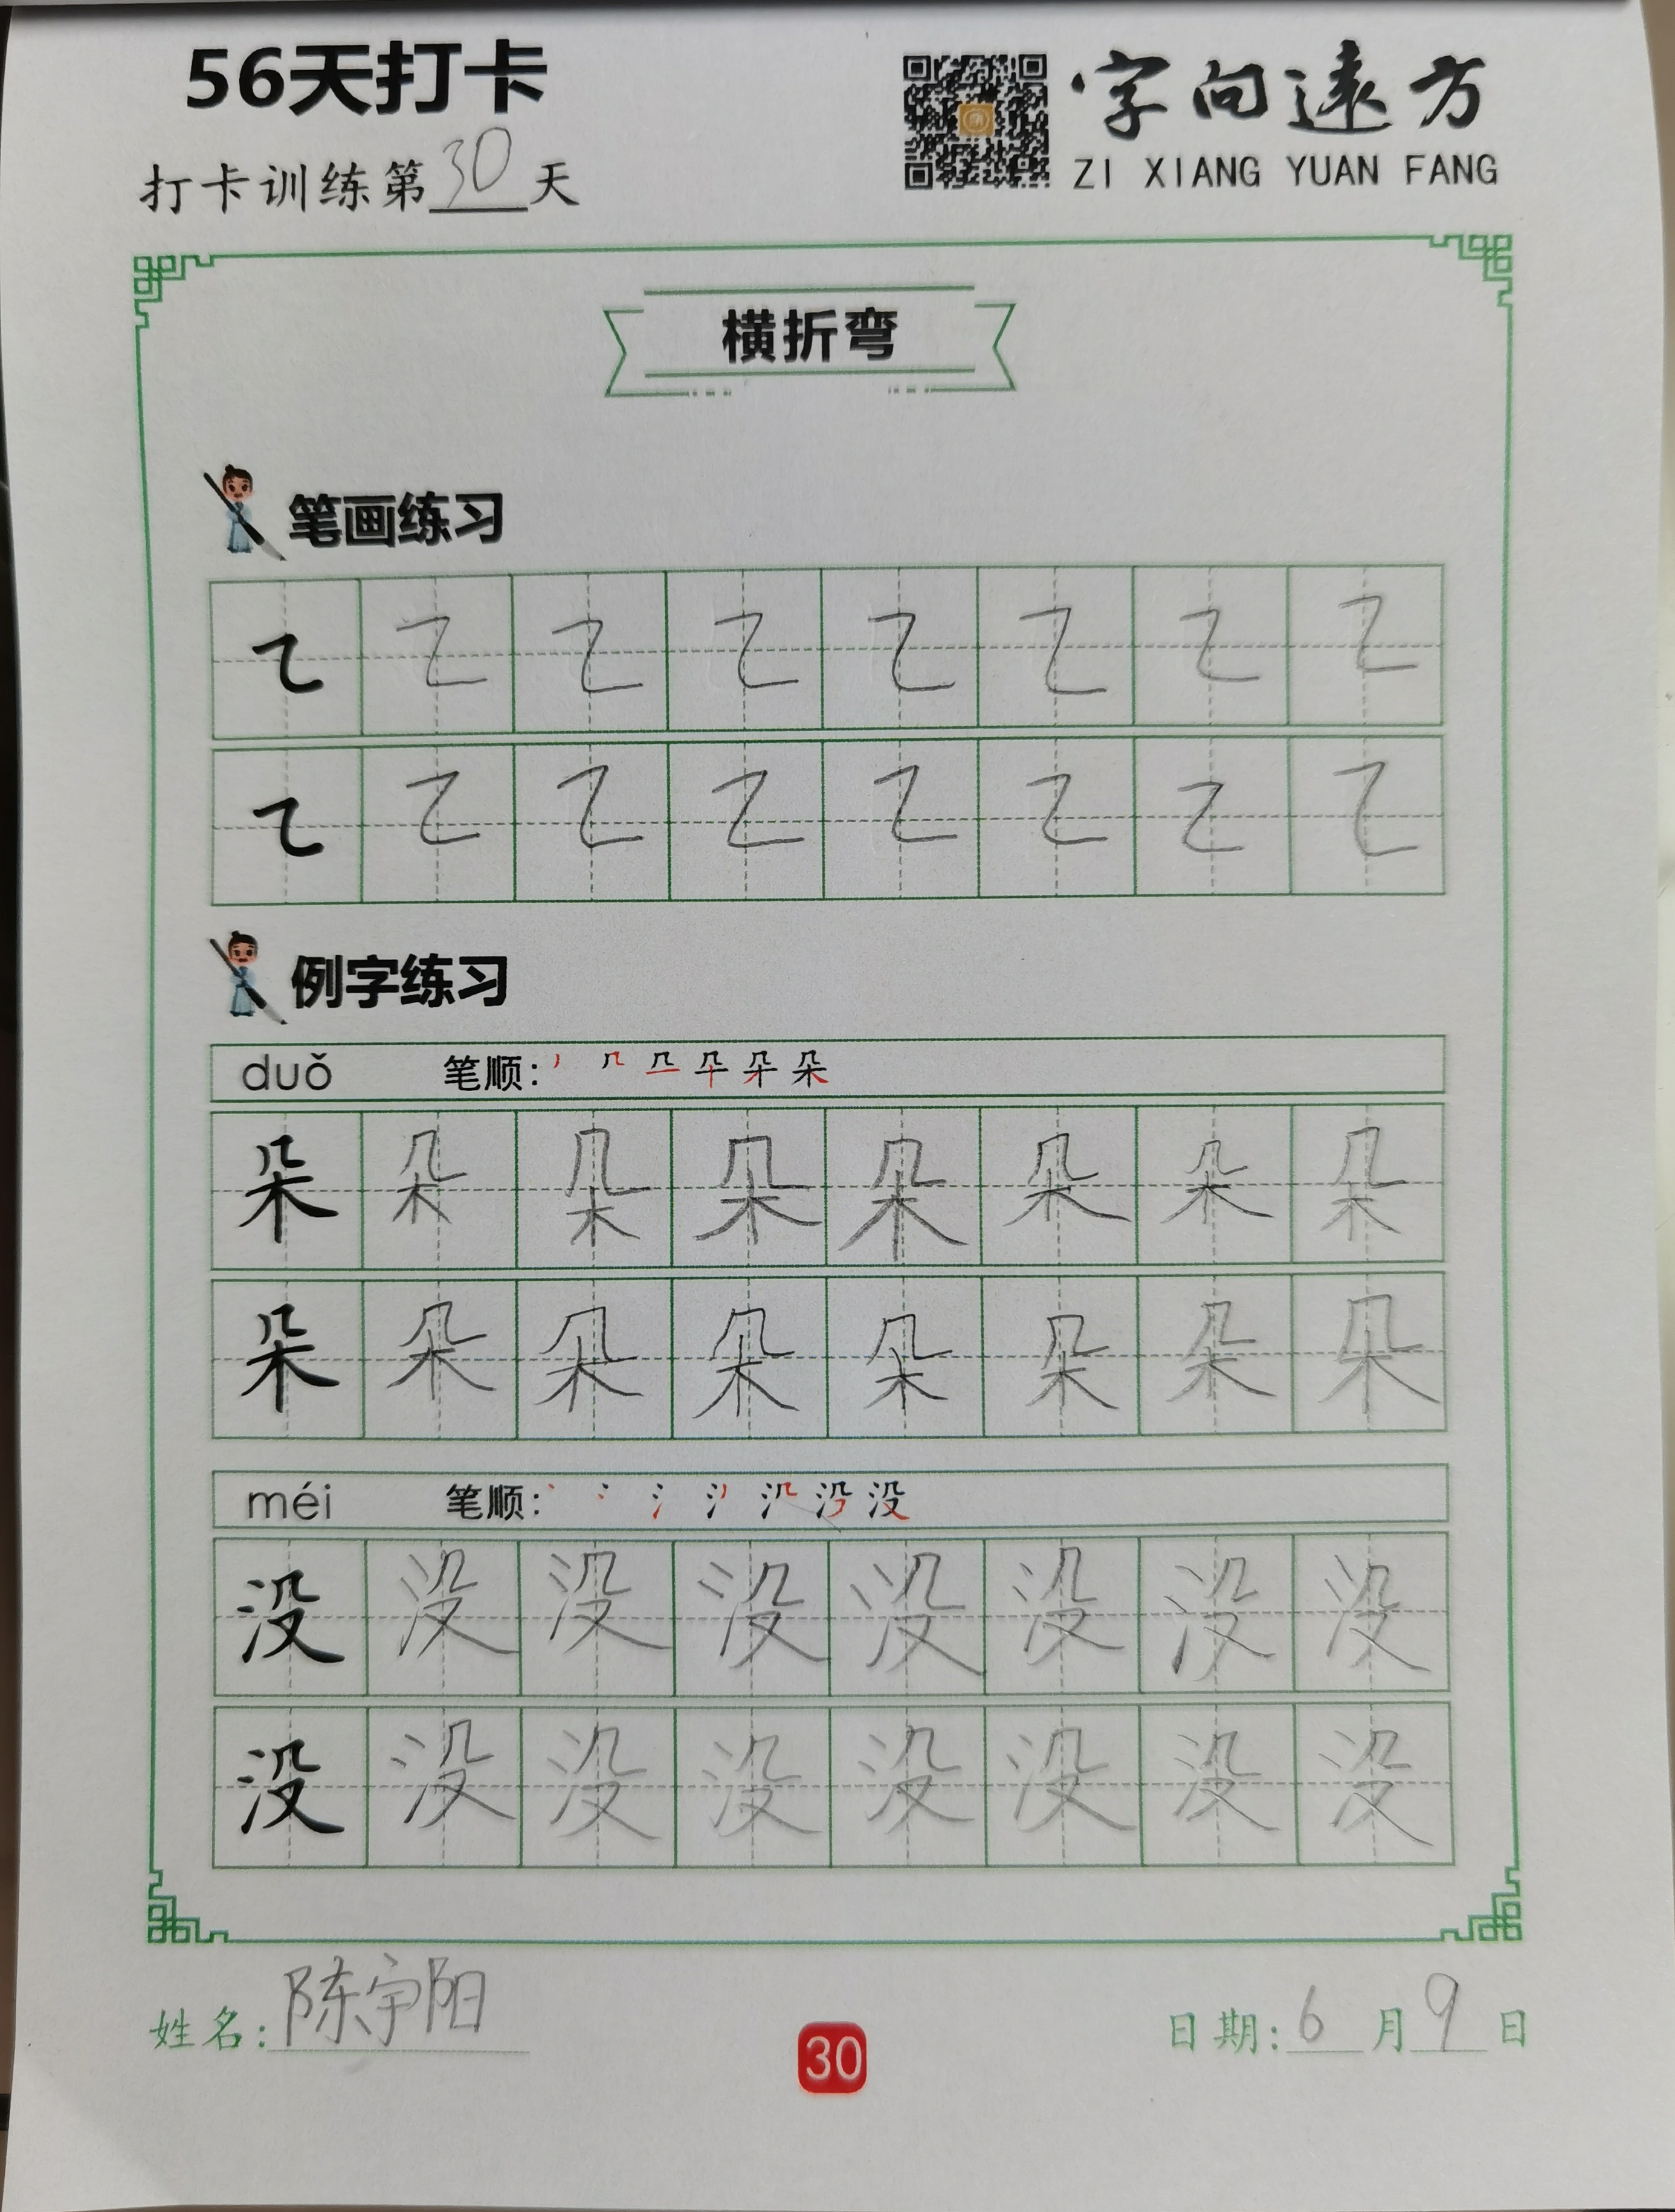 56天打卡
字向远方
ZI XIANG YUAN FANG
打卡训练第30天
横折弯
笔画练习
㇍ ㇍ ㇍ ㇍ ㇍ ㇍ ㇍ ㇍
㇍ ㇍ ㇍ ㇍ ㇍ ㇍ ㇍ ㇍
例字练习
duǒ 笔顺:
朵 朵 朵 朵 朵 朵 朵 朵
朵 朵 朵 朵 朵 朵 朵 朵
méi 笔顺:
没 没 没 没 没 没 没 没
没 没 没 没 没 没 没 没
姓名:陈宇阳
30
日期:6月9日